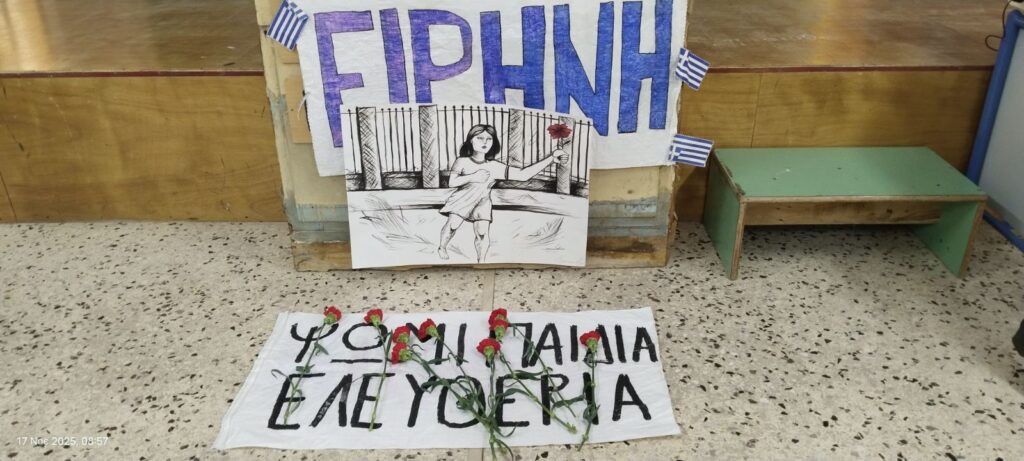 ΕΙΡΗΝΗ
ΨΩΜΙ ΠΑΙΔΙΑ
ΕΛΕΥΘΕΡΙΑ
17 Νοε 2025, 08:57